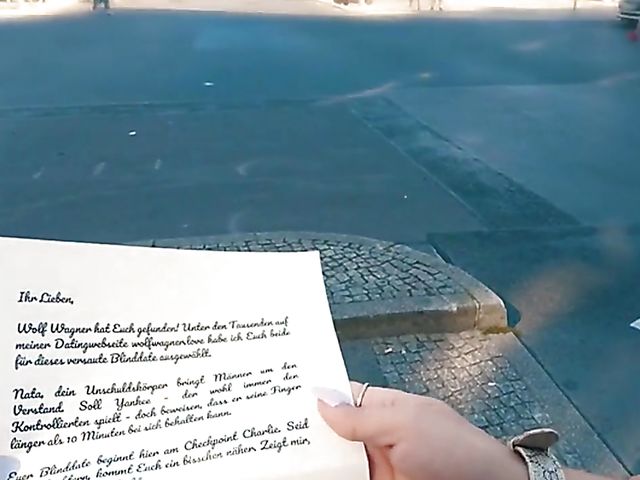 Ihr Lieben,
Wolf Wagner hat Euch gefunden! Unter den Tausenden auf
meiner Datingwebseite wolfwagner.love habe ich Euch beide
für dieses versaute Blinddate ausgewählt.
Nata, dein Unschuldskörper bringt Männer um den
Verstand. Soll Yankee - den wohl immer den
Kontrollierten spielt - doch beweisen, dass er seine Finger
länger als 10 Minuten bei sich behalten kann.
Euer Blinddate beginnt hier am Checkpoint Charlie. Seid
kommt Euch ein bisschen näher. Zeigt mir,